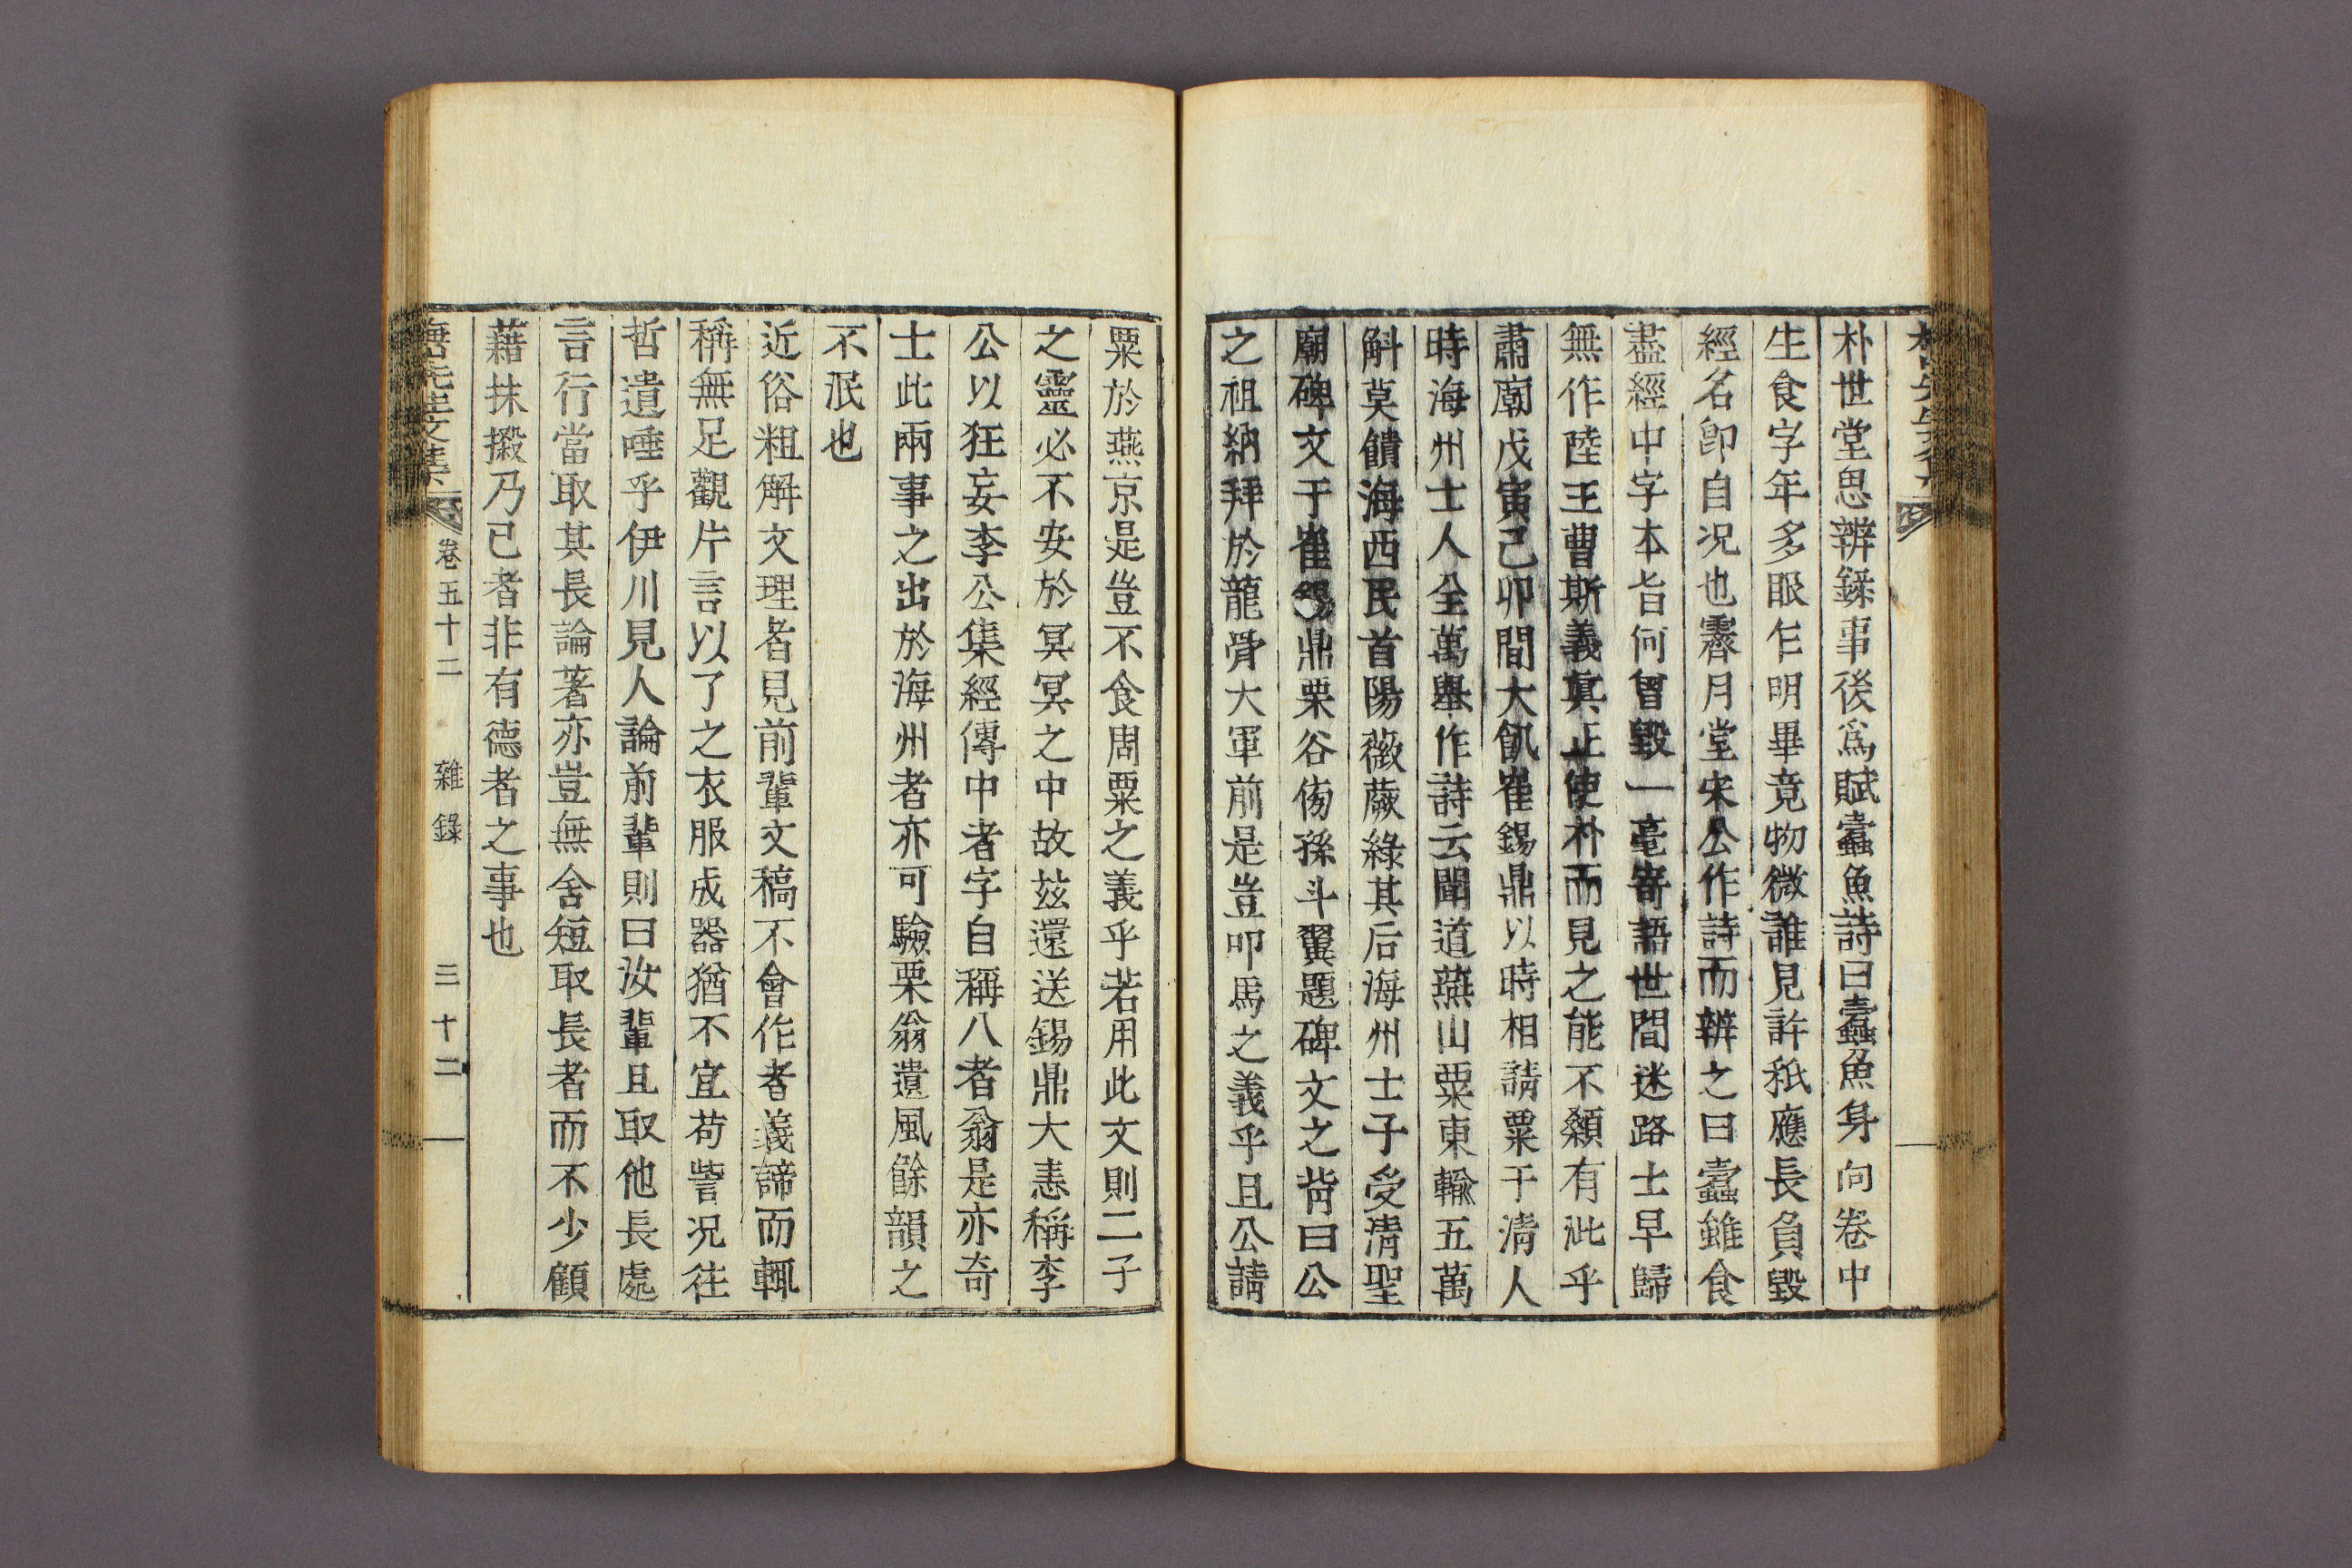 朴世堂思辨錄事後爲賦蠹魚詩曰蠹魚身向卷中
生食字年多眼乍明畢竟物微誰見許秖應長負毀
經名卽自況也霽月堂宋公作詩而辨之曰蠹雖食
盡經中字本旨何曾毀一毫寄語世間迷路士早歸
無作陸王曹斯義眞正使朴而見之能不纇有泚乎
肅廟戊寅己卯間大飢崔錫鼎以時相請粟于淸人
時海州士人全萬擧作詩云聞道燕山粟東輸五萬
斛莫饋海西民首陽薇蕨綠其后海州士子受淸聖
廟碑文于崔錫鼎栗谷傍孫斗翼題碑文之背曰公
之祖納拜於龍骨大軍前是豈叩馬之義乎且公請
粟於燕京是豈不食周粟之義乎若用此文則二子
之靈必不安於冥冥之中故玆還送錫鼎大恚稱李
公以狂妄李公集經傳中者字自稱八者翁是亦奇
士此兩事之出於海州者亦可驗栗翁遺風餘韻之
不泯也
近俗粗解文理者見前輩文稿不會作者義諦而輒
稱無足觀片言以了之衣服成器猶不宜苟訾況往
哲遺唾乎伊川見人論前輩則曰汝輩且取他長處
言行當取其長論著亦豈無舍短取長者而不少顧
藉抹摋乃已者非有德者之事也
卷五十二 雜錄 三十二